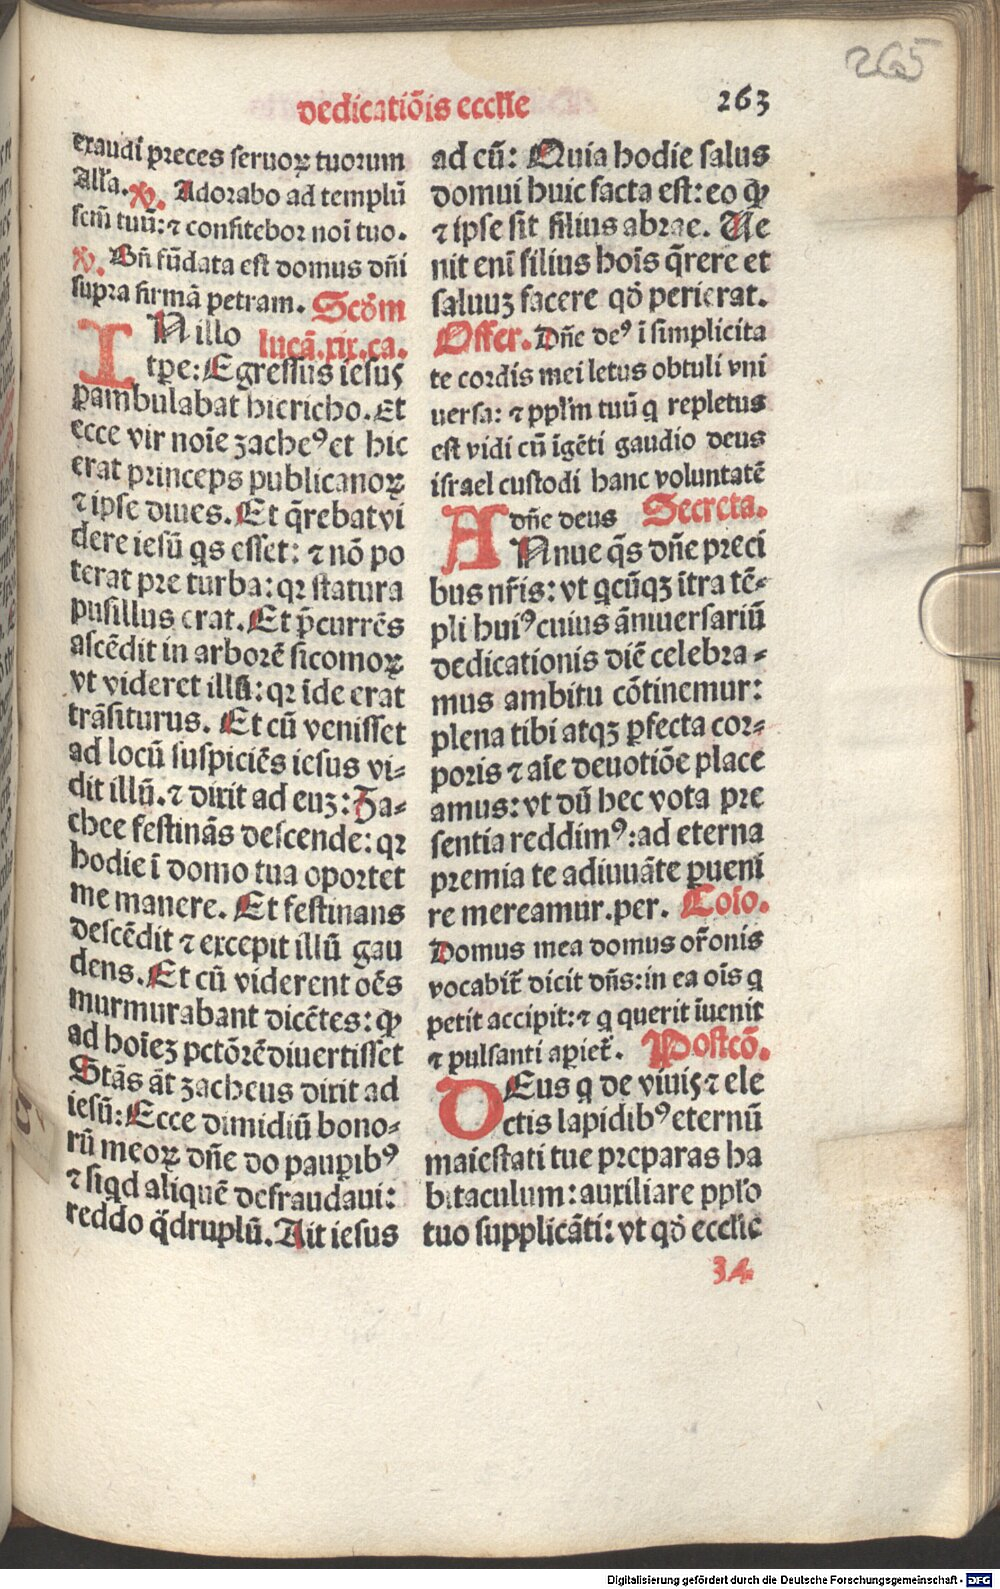 265
dedicatiōis eccl'ie
263
exaudī p̄ces seruoꝝ tuorum
Alľa. ꝟ. Adorabo ad templū
scm̄ tuū: ⁊ confitebor noī tuo.
ꝟ. Bn̄ fūdata est domus dn̄i
supra firmā petram. Scďm
lucā.xix.ca.
IN illo
tꝑe: Egressus iesus
ꝑambulabat hiericho. Et
ecce vir noīe zacheꝰ et hic
erat princeps publicanoꝝ
⁊ ipse diues. Et q̄rebat vi
dere iesū qs esset: ⁊ nō po
terat pre turba: qꝛ statura
pusillus erat. Et p̄currēs
ascēdit in arborē sicomoꝝ
vt videret illū: qꝛ īde erat
trāsiturus. Et cū venisset
ad locū suspiciēs iesus vi⸗
dit illū. ⁊ dixit ad euꝫ: Za⸗
chee festinās descende: qꝛ
hodie ī domo tua oportet
me manere. Et festinans
descēdit ⁊ excepit illū gau
dens. Et cū viderent oēs
murmurabant dicētes: ꝙ
ad hoīeꝫ pctōrē diuertisset
Stās āt zacheus dixit ad
iesū: Ecce dimidiū bono⸗
rū meoꝝ dn̄e do pauꝑibꝰ
⁊ siqd aliquē defraudaui:
reddo q̄druplū. Ait iesus
ad eū: Quia hodie salus
domui huic facta est: eo ꝙ
⁊ ipse sit filius abrae. Ue
nit enī filius hoīs q̄rere et
saluuꝫ facere qď perierat.
Offer. Dn̄e deꝰ ī simplicita
te cordis mei letus obtuli vni
uersa: ⁊ ppl'm tuū q repletus
est vidi cū īgēti gaudio deus
israel custodi hanc voluntatē
dn̄e deus Secreta.
ANnue q̄s dn̄e preci
bus nr̄is: vt qcūqꝫ ītra tē⸗
pli huiꝰ cuius āniuersariū
dedicationis diē celebra⸗
mus ambitu cōtinemur:
plena tibi atqꝫ ꝑfecta cor⸗
poris ⁊ aīe deuotiōe place
amus: vt dū hec vota pre
sentia reddimꝰ: ad eterna
premia te adiuuāte ꝑuenī
re mereamur. per. Coīo.
Domus mea domus or̄onis
vocabit̄ dicit dn̄s: in ea oīs q
petit accipit: ⁊ q querit īuenit
⁊ pulsanti aꝑiet̄. Postcō.
DEus q de viuis ⁊ ele
ctis lapidibꝰ eternū
maiestati tue preparas ha
bitaculum: auxiliare ppľo
tuo supplicāti: vt qď eccl'ie
34
Digitalisierung gefördert durch die Deutsche Forschungsgemeinschaft - DFG